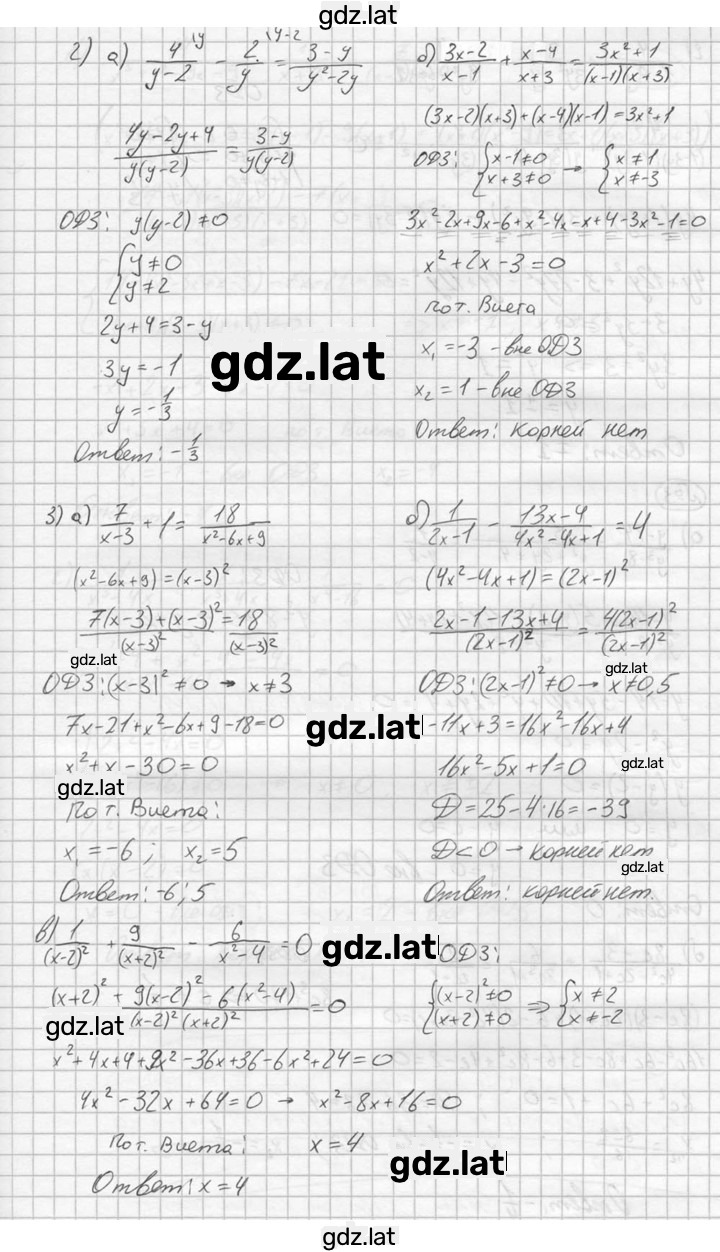 gdz.lat
2) а) 4/(y-2) \y - 2/y \y-2 = (3-y)/(y²-2y)
(4y-2y+4)/(y(y-2)) = (3-y)/(y(y-2))
ОДЗ: y(y-2)≠0
{y≠0
{y≠2
2y+4=3-y
3y=-1
y=-1/3
Ответ: -1/3
б) (3x-2)/(x-1) + (x-4)/(x+3) = (3x²+1)/((x-1)(x+3))
(3x-2)(x+3)+(x-4)(x-1)=3x²+1
ОДЗ: {x-1≠0 → {x≠1
{x+3≠0 {x≠-3
3x²-2x+9x-6+x²-4x-x+4-3x²-1=0
x²+2x-3=0
По т. Виета
x₁=-3 - вне ОДЗ
x₂=1 - вне ОДЗ
Ответ: корней нет
gdz.lat
3) а) 7/(x-3) + 1 = 18/(x²-6x+9)
(x²-6x+9)=(x-3)²
(7(x-3)+(x-3)²)/(x-3)² = 18/(x-3)²
gdz.lat
ОДЗ: (x-3)²≠0 → x≠3
7x-21+x²-6x+9-18=0
x²+x-30=0
gdz.lat
По т. Виета:
x₁=-6; x₂=5
Ответ: -6; 5
б) 1/(2x-1) - (13x-4)/(4x²-4x+1) = 4
(4x²-4x+1)=(2x-1)²
(2x-1-13x+4)/(2x-1)² = 4(2x-1)²/(2x-1)²
gdz.lat
ОДЗ: (2x-1)²≠0 → x≠0,5
gdz.lat
-11x+3=16x²-16x+4
16x²-5x+1=0
gdz.lat
D=25-4·16=-39
D<0 → корней нет
gdz.lat
Ответ: корней нет.
в) 1/(x-2)² + 9/(x+2)² - 6/(x²-4) = 0
gdz.lat
ОДЗ:
((x+2)²+9(x-2)²-6(x²-4))/((x-2)²(x+2)²)=0
{(x-2)²≠0 ⇒ {x≠2
{(x+2)≠0 {x≠-2
gdz.lat
x²+4x+4+9x²-36x+36-6x²+24=0
4x²-32x+64=0 → x²-8x+16=0
По т. Виета: x=4
gdz.lat
Ответ: x=4
gdz.lat